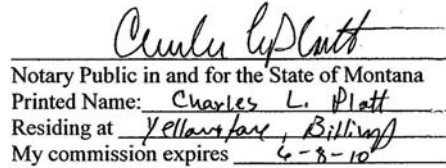 Notary Public in and for the State of Montana
Printed Name: Charles L. Platt
Residing at Yellowstone, Billings
My commission expires 6-8-10